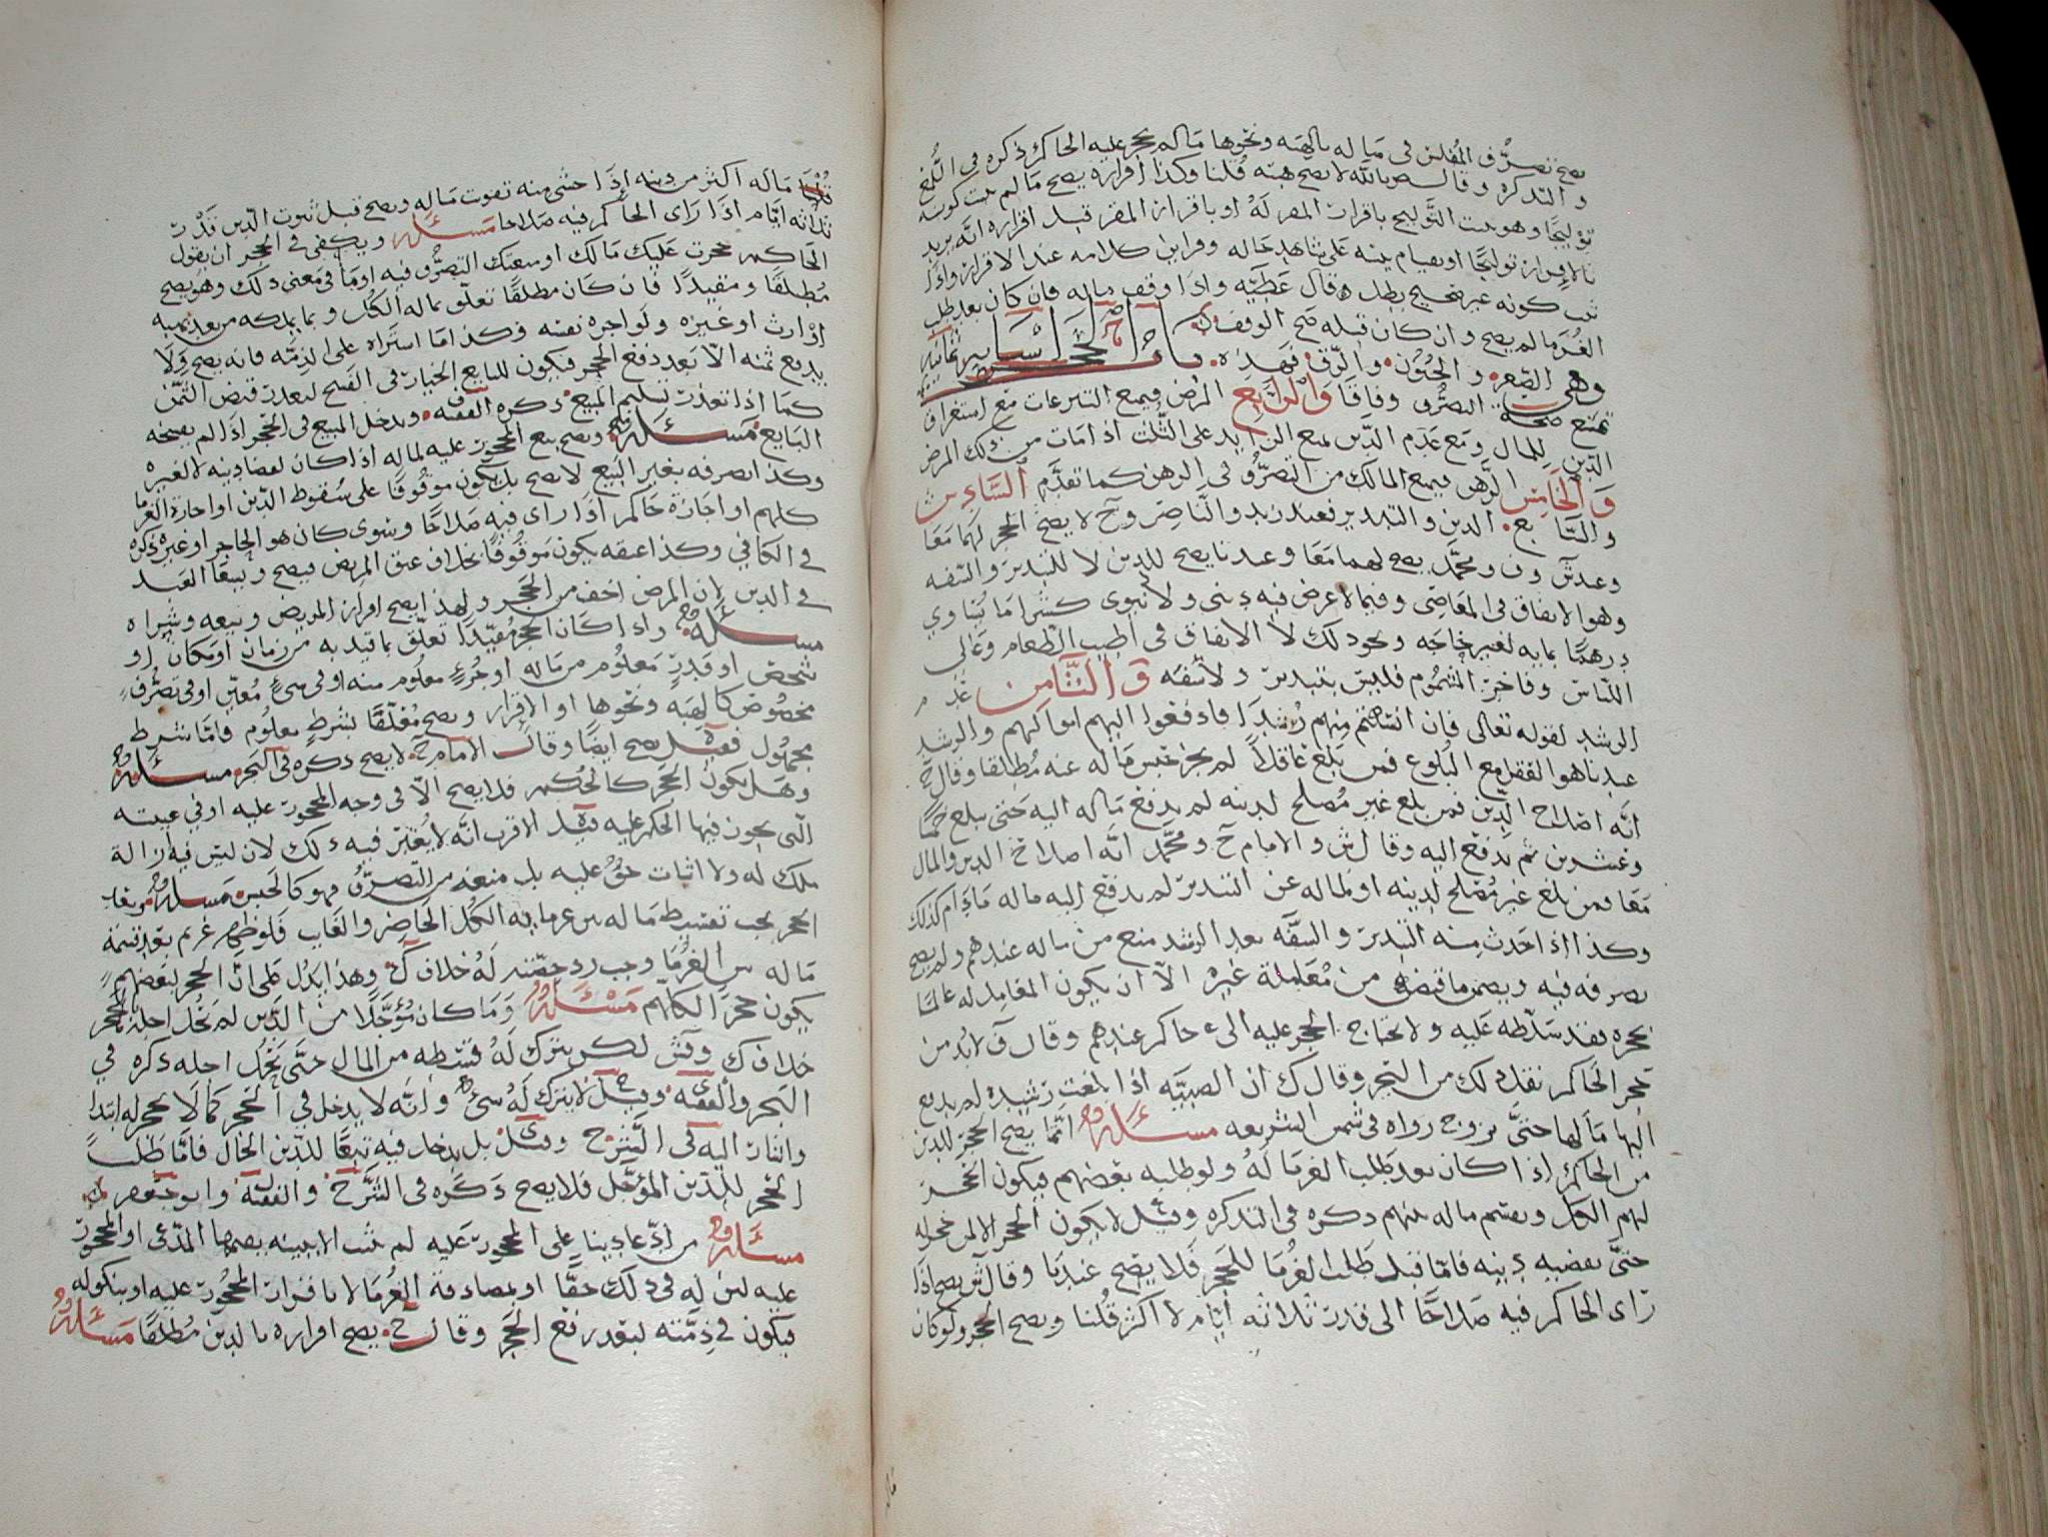 يصح تصرف المفلس في ماله بالهبه ونحوها ما لم يحجر عليه الحاكم ذكره في اللمع
والتذكره وقال بالله لا يصح هبته قلنا وكذا اقراره يصح ما لم يثبت كونه
توليجًا وهو يثبت التوليج باقرار المقر له او باقرار المقر قبل اقراره انه يريد
بالاقرار توليجًا او بقيام بينه على شاهد حاله وقراين كلامه عند الاقرار واذا
ثبت كونه غير صحيح بطل ه قال عطيه واذا وقف ماله فان كان بعد طلب
الغرما لم يصح وان كان قبله صح الوقف باب الحجر اسبابه ثمانيه
وهي الصغر والجنون والرق فهذه
تمنع صحة التصرف وفاقا والرابع المرض فيمنع التبرعات مع استغراق
الدين للمال ومع عدم الدين يمنع الزايد على الثلث اذا مات من ذلك المرض
والخامس الرهن فيمنع المالك من التصرف في الرهن كما تقدم السادس
والسابع الدين والتبذير فعند زيد والناصر وح لا يصح الحجر لهما معا
وعند ش وف ومحمد يصح لهما معا وعندنا يصح للدين لا للتبذير والسفه
وهو الانفاق في المعاصي وفيما لا غرض فيه ديني ولا دنيوي كشرا ما يساوي
درهمًا بمايه لغير حاجه ونحو ذلك لا الانفاق في اطيب الطعام وغالي
اللباس وفاخر المشموم فليس بتبذير ولا سفه والثامن عدم
الرشد لقوله تعالى فان انستم منهم رشدا فادفعوا اليهم اموالهم والرشد
عندنا هو العقل مع البلوع فمن بلغ عاقلاً لم يجز حبس ماله عنه مطلقا وقال ح
انه اصلاح الدين فمن بلغ غير مصلح لدينه لم يدفع ماله اليه حتى يبلغ خمسا
وعشرين ثم يدفع اليه وقال ش والامام ح ومحمد انه اصلاح الدين والمال
معا فمن بلغ غير مصلح لدينه او لماله عن التبذير لم يدفع اليه ماله ما دام كذلك
وكذا اذا حدث منه التبذير والسفه بعد الرشد منع من ماله عندهم ولم يصح
تصرفه فيه ويضمن ما قبضه من معاملة غيره الا ان يكون المعامل له عالما
بحجره فقد سلطه عليه ولا يحتاج الحجر عليه الى حاكم عندهم وقال ف لا بد من
حجر الحاكم نقل ذلك من البحر وقال ك ان الصبيه اذا بلغت رشيده لم يدفع
اليها مالها حتى تزوج رواه في شمس الشريعه مسئله انما يصح الحجر للدين
من الحاكم اذا كان بعد طلب الغرما له ولو طلبه بعضهم فيكون الحجر
لهم الكل ويقسم ماله بينهم ذكره في التذكره وقيل لا يكون الحجر الا لمن حجر له
حتى يقضيه دينه فاما قبل طلب الغرما للحجر فلا يصح عندنا وقال ش يصح اذا
راى الحاكم فيه صلاحًا الى قدر ثلاثه ايام لا اكثر قلنا ويصح الحجر ولو كان
ماله اكثر من دينه اذا خشي منه تفوت ماله ويصح قبل ثبوت الدين قدر
ثلاثه ايام اذا راى الحاكم فيه صلاحا مسئله ويكفي في الحجر ان يقول
الحاكم حجرت عليك مالك او منعتك التصرف فيه او ما في معنى ذلك وهو يصح
مطلقًا ومقيدًا فان كان مطلقًا تعلق بماله الكل وبما يملكه من بعد بهبه
او ارث او غيره ولو اجره نفسه وكذا ما اشتراه على الذمه فانه يصح ولا
يدفع ثمنه الا بعد رفع الحجر فيكون للبايع الخيار في الفسخ لتعذر قبض الثمن
كما اذا تعذر تسليم المبيع ذكره الفقيه ويدخل المبيع في الحجر اذا لم يفسخه
البايع مسئله ويصح بيع المحجور عليه لماله اذا كان لقضا دينه لا لغيره
وكذا تصرفه بغير البيع لا يصح بل يكون موقوفًا على سقوط الدين او اجازة الغرما
كلهم او اجازة حاكم اذا راى فيه صلاحًا وسوى كان هو الحاجر او غيره ذكره
في الكافي وكذا عتقه يكون موقوفًا بخلاف عتق المريض فيصح ويسعا العبد
في الدين لان المرض اخف من الحجر ولهذا يصح اقرار المريض وبيعه وشراه
مسئله واذا كان الحجر مقيدًا تعلق بما قيد به من زمان او مكان او
شخص او قدر معلوم من ماله او جزء معلوم منه او في شيء معين او في تصرف
مخصوص كالهبه ونحوها او الاقرار ويصح معلقًا بشرط معلوم فاما بشرط
مجهول فقيل يصح ايضًا وقال الامام ح لا يصح ذكره في البحر مسئله
وهل يكون الحجر كالحكم فلا يصح الا في وجه المحجور عليه او في غيبته
التي يجوز فيها الحكم عليه قيل الاقرب انه لا يعتبر فيه ذلك لان ليس فيه ازالة
ملك له ولا اثبات حق عليه بل منعه من التصرف فهو كالحبس مسئله وبعد
الحجر يجب تقسيط ماله بين غرمايه الكل الحاضر والغايب فلو ظهر غريم بعد قسمة
ماله بين الغرما وجب رد حصته له خلاف ك وهذا يدل على ان الحجر لبعضهم
يكون حجرًا لكلهم مسئله وما كان مؤجلًا من الدين لم يحل اجله بالحجر
خلاف ك وقش لكن يترك له قسطه من المال حتى يحل اجله ذكره في
البحر والفقيه وقيل لا يترك له شيء وانه لا يدخل في الحجر كما لا يحجر له ابتدا
واشار اليه في الشرح وقيل بل يدخل فيه تبعًا للدين الحال فاما طلب
الحجر للدين المؤجل فلا يصح ذكره في الشرح والفقيه وابو جعفر
مسئله من ادعا دينا على المحجور عليه لم يثبت الا ببينه يقيمها المدعي او المحجور
عليه لان له في ذلك حقًا او بمصادقة الغرما لا باقرار المحجور عليه او بنكوله
فيكون في ذمته لبعد رفع الحجر وقال ح يصح اقراره بالدين مطلقًا مسئله